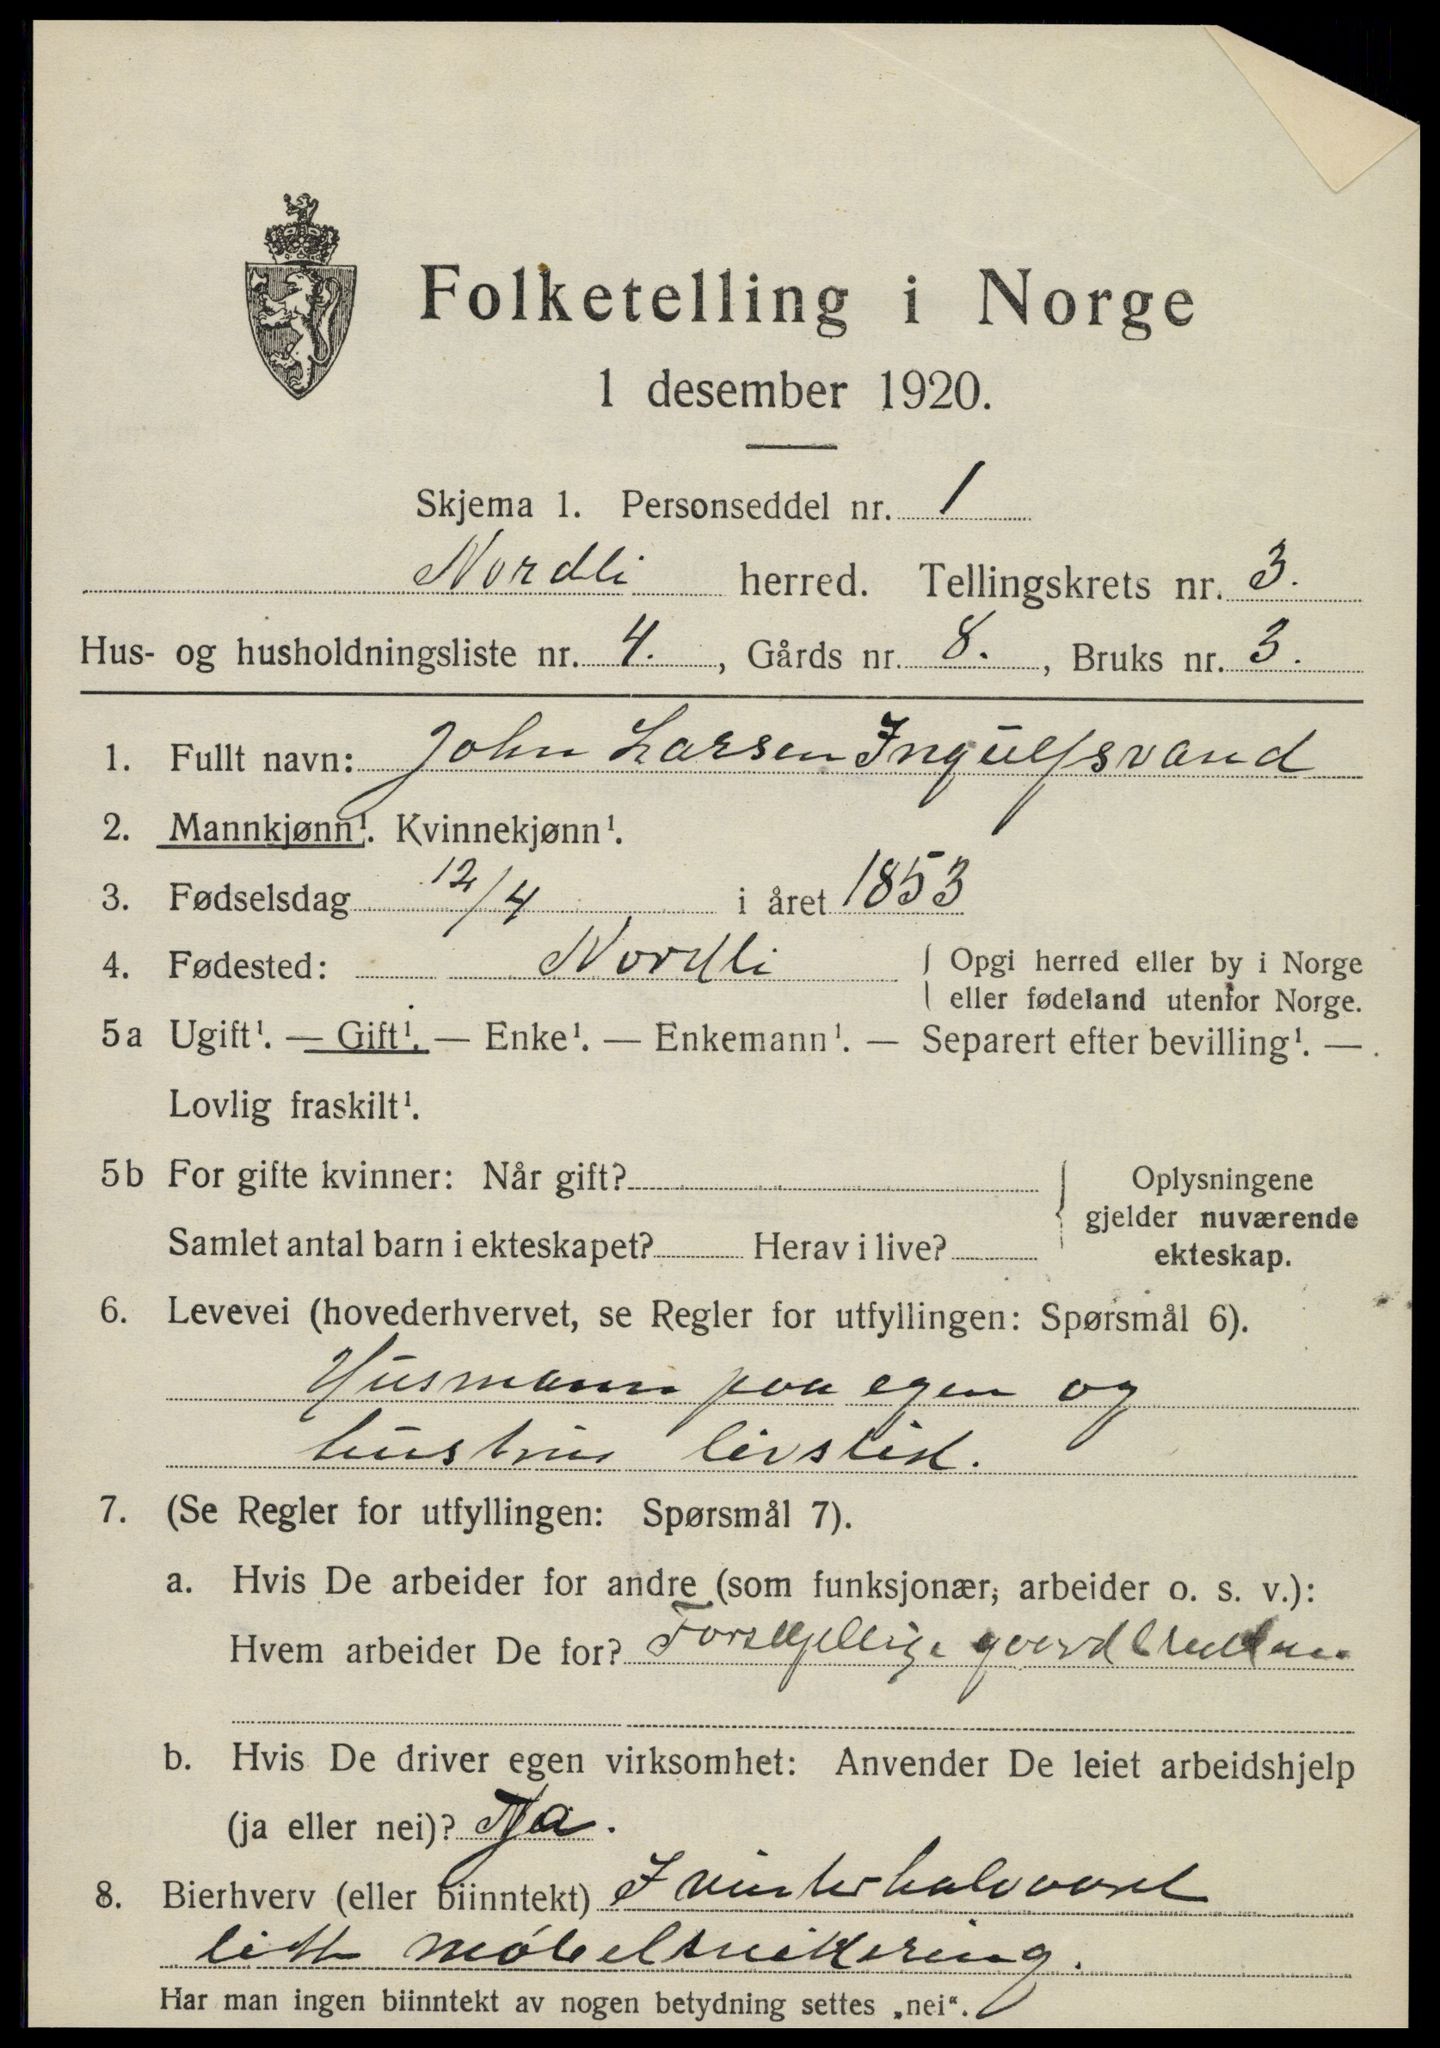 Folketelling i Norge
1 desember 1920.
Skjema 1. Personseddel nr. 1
Nordli herred. Tellingskrets nr. 3.
Hus- og husholdningsliste nr. 4. , Gårds nr. 8. , Bruks nr. 3.
1. Fullt navn: John Larsen Ingulfsvand
2. Mannkjønn¹. Kvinnekjønn¹.
3. Fødselsdag 12/4 i året 1853
4. Fødested: Nordli { Opgi herred eller by i Norge
eller fødeland utenfor Norge.
5a Ugift¹. — Gift¹. — Enke¹. — Enkemann¹. — Separert efter bevilling¹. —
Lovlig fraskilt¹.
5b For gifte kvinner: Når gift? Oplysningene
gjelder nuværende
Samlet antal barn i ekteskapet? Herav i live? ekteskap.
6. Levevei (hovederhvervet, se Regler for utfyllingen: Spørsmål 6).
Husmann paa egen og
hustrus livstid.
7. (Se Regler for utfyllingen: Spørsmål 7).
a. Hvis De arbeider for andre (som funksjonær, arbeider o. s. v.):
Hvem arbeider De for? Forskjellige
b. Hvis De driver egen virksomhet: Anvender De leiet arbeidshjelp
(ja eller nei)? Ja.
8. Bierhverv (eller biinntekt) I vinterhalvaaret
litt møbelsnikkering.
Har man ingen biinntekt av nogen betydning settes „nei“.